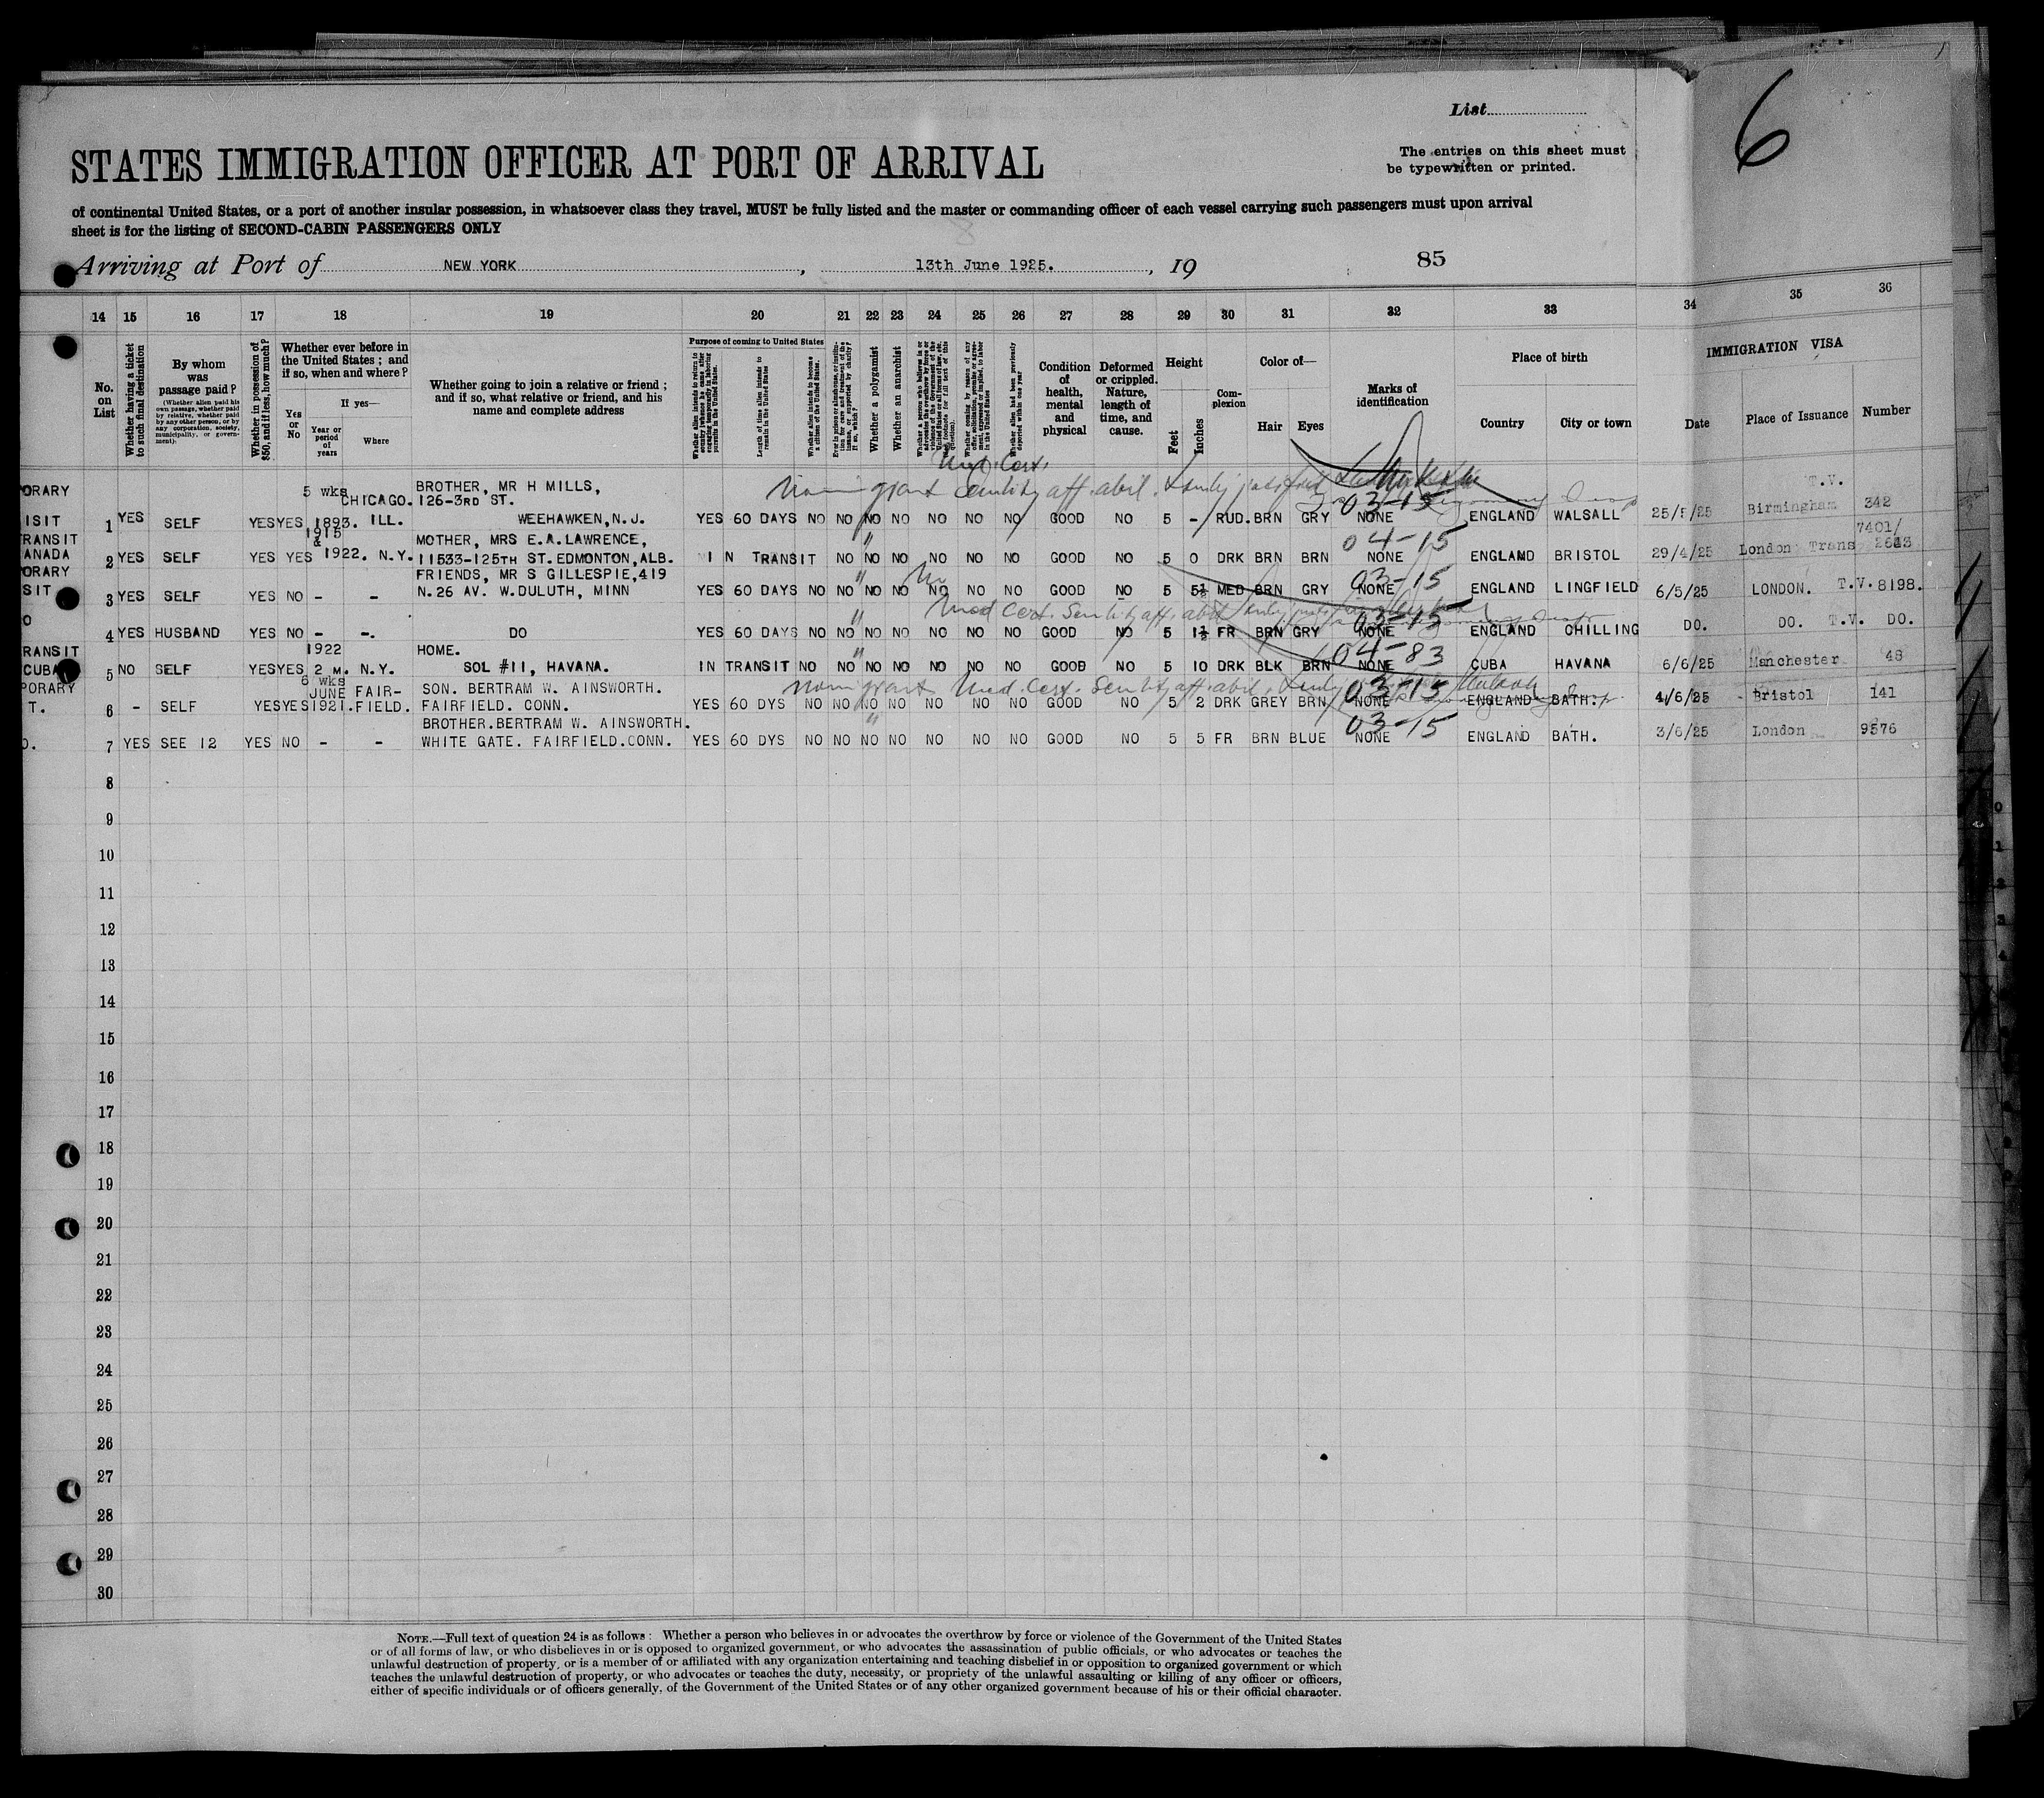 List
6
STATES IMMIGRATION OFFICER AT PORT OF ARRIVAL
The entries on this sheet must
be typewritten or printed.
of continental United States, or a port of another insular possession, in whatsoever class they travel, MUST be fully listed and the master or commanding officer of each vessel carrying such passengers must upon arrival
sheet is for the listing of SECOND-CABIN PASSENGERS ONLY
Arriving at Port of NEW YORK, 13th June 1925., 19 85
14 15 16 17 18 19 20 21 22 23 24 25 26 27 28 29 30 31 32 33 34 35 36
No. on List
Whether having a ticket to such final destination
By whom was passage paid?
(Whether alien paid his own passage, whether paid by relative, whether paid by any other person, or by any corporation, society, municipality, or government).
Whether in possession of $50, and if less, how much?
Whether ever before in the United States; and if so, when and where?
Yes or No
If yes—
Year or period of years
Where
Whether going to join a relative or friend; and if so, what relative or friend, and his name and complete address
Purpose of coming to United States
Length of time alien intends to remain in the United States
Whether alien intends to become a citizen of the United States.
Whether a polygamist
Whether an anarchist
Condition of health, mental and physical
Deformed or crippled. Nature, length of time, and cause.
Height
Feet
Inches
Complexion
Color of—
Hair
Eyes
Marks of identification
Place of birth
Country
City or town
IMMIGRATION VISA
Date
Place of Issuance
Number
Med. Cert.
ORARY 5 wks CHICAGO. BROTHER, MR H MILLS, 126-3RD ST. 03-15 T.V.
ISIT 1 YES SELF YES YES 1893. ILL. WEEHAWKEN, N.J. YES 60 DAYS NO NO NO NO NO NO NO GOOD NO 5 - RUD. BRN GRY NONE ENGLAND WALSALL 25/5/25 Birmingham 342
RANSIT 1915 & MOTHER, MRS E.A. LAWRENCE, 04-15 7401/
ANADA 2 YES SELF YES YES 1922. N.Y. 11533-125TH ST. EDMONTON, ALB. IN TRANSIT NO NO NO NO NO NO GOOD NO 5 0 DRK BRN BRN NONE ENGLAND BRISTOL 29/4/25 London Trans
ORARY FRIENDS, MR S GILLESPIE, 419 03-15
SIT 3 YES SELF YES NO - - N.26 AV. W. DULUTH, MINN YES 60 DAYS NO NO NO NO NO NO NO GOOD NO 5 MED BRN GRY NONE ENGLAND LINGFIELD 6/5/25 LONDON. T.V. 8198.
Med Cert. 03-15
O 4 YES HUSBAND YES NO - -. DO YES 60 DAYS NO NO NO NO NO NO NO GOOD NO 5 FR BRN GRY NONE ENGLAND CHILLING DO. DO. T.V. DO.
RANSIT 1922 HOME. 04-83
CUBA 5 NO SELF YES YES 2 M. N.Y. SOL #11, HAVANA. IN TRANSIT NO NO NO NO NO NO NO GOOD NO 5 10 DRK BLK BRN NONE CUBA HAVANA 6/6/25 Manchester 48
PORARY 6 wks JUNE FAIR- SON. BERTRAM W. AINSWORTH. Med. Cert. 03-15
T. 6 - SELF YES YES 1921. FIELD. FAIRFIELD. CONN. YES 60 DYS NO NO NO NO NO NO NO GOOD NO 5 2 DRK GREY BRN NONE ENGLAND BATH. 4/6/25 Bristol 141
BROTHER. BERTRAM W. AINSWORTH. 03-15
O. 7 YES SEE 12 YES NO - - WHITE GATE. FAIRFIELD. CONN. YES 60 DYS NO NO NO NO NO NO NO GOOD NO 5 5 FR BRN BLUE NONE ENGLAND BATH. 3/6/25 London 9576
8
9
10
11
12
13
14
15
16
17
18
19
20
21
22
23
24
25
26
27
28
29
30
NOTE.—Full text of question 24 is as follows: Whether a person who believes in or advocates the overthrow by force or violence of the Government of the United States
or of all forms of law, or who disbelieves in or is opposed to organized government, or who advocates the assassination of public officials, or who advocates or teaches the
unlawful destruction of property, or is a member of or affiliated with any organization entertaining and teaching disbelief in or opposition to organized government or which
teaches the unlawful destruction of property, or who advocates or teaches the duty, necessity, or propriety of the unlawful assaulting or killing of any officer or officers,
either of specific individuals or of officers generally, of the Government of the United States or of any other organized government because of his or their official character.